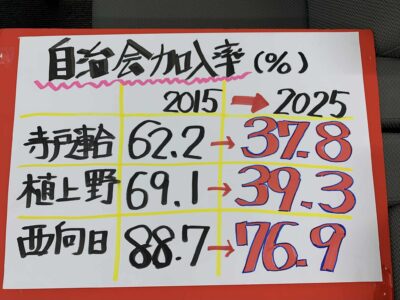 自治会加入率(%)
2015 → 2025
寺戸輪 62.2 → 37.8
植上野 69.1 → 39.3
西向日 88.7 → 76.9